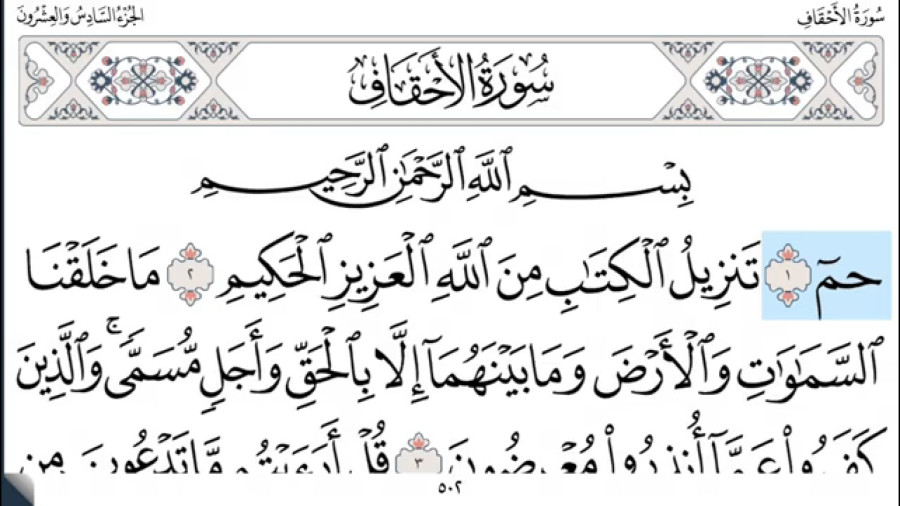 سُورَةُ الأَحْقَافِ
الجُزْءُ السَّادِسُ وَالعِشْرُونَ
سُورَةُ الأَحْقَافِ
بِسْمِ ٱللَّهِ ٱلرَّحْمَٰنِ ٱلرَّحِيمِ
حمٓ ١ تَنزِيلُ ٱلْكِتَٰبِ مِنَ ٱللَّهِ ٱلْعَزِيزِ ٱلْحَكِيمِ ٢ مَا خَلَقْنَا
ٱلسَّمَٰوَٰتِ وَٱلْأَرْضَ وَمَا بَيْنَهُمَآ إِلَّا بِٱلْحَقِّ وَأَجَلٍ مُّسَمًّى ۚ وَٱلَّذِينَ
كَفَرُوا۟ عَمَّآ أُنذِرُوا۟ مُعْرِضُونَ ٣ قُلْ أَرَءَيْتُم مَّا تَدْعُونَ مِن
٥٠٢